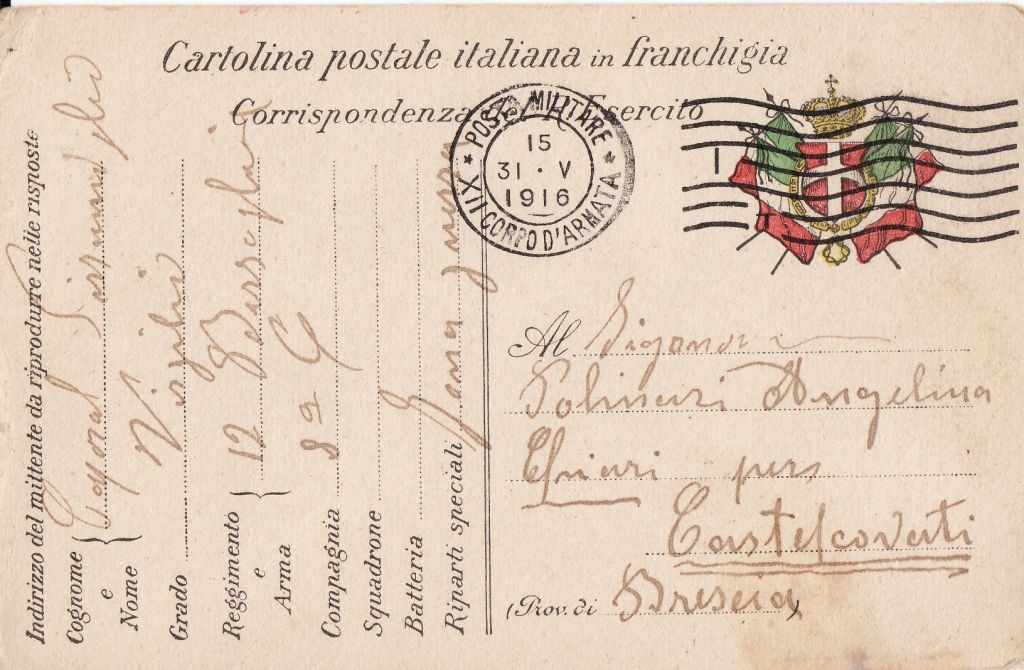 Cartolina postale italiana in franchigia
Corrispondenza Esercito
POSTA MILITARE
15
31 · V
1916
XII CORPO D'ARMATA
Al Signora
Polinari Angelina
Chiari per
Castelcovati
(Prov. di Brescia)
Indirizzo del mittente da riprodurre nelle risposte
Cognome e Nome { Caporal
Grado
Reggimento e Arma { 12 Bersaglieri
Compagnia 8a C
Squadrone
Batteria
Riparti speciali Zona guerra